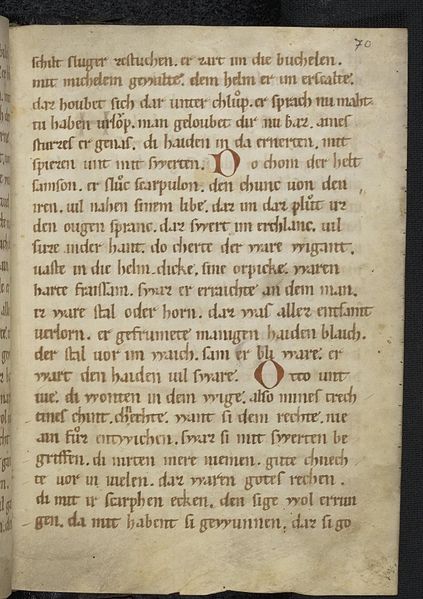 70
schilt sluger zestuchen. er zart im die buchelen.
mit michelem gewalte. dem helm er im erscalte.
daz houbet sich dar unter chlůp. er sprach nu maht
tu haben urlǒp. man geloubet dir nu baz. aines
sturzes er genas. di haiden in da ernerten. mit
spiezen unt mit swerten. Do chom der helt
samson. er slůc scarpulon. den chunc von den
iren. uil nahen sinem libe. daz im daz plůt uz
den ougen spranc. daz swert im erchlanc. uil
sure ander hant. do cherte der ware wigant.
uaste in die helm. dicke. sine orpicke. waren
harte fraissam. swaz er erraichte an dem man.
iz ware stal oder horn. daz was allez entsamt
uerlorn. er gefrumete manigen haiden blaich.
der stal uor im waich. sam er bli ware. er
wart den haiden uil sware. Otto unt
iue. di wonten in dem wige. also mines trech
tines chint. chnechte. want si dem rechte. nie
ain fůz entwichen. swaz si mit swerten be
griffen. di nirten mere niemen. gute chnech
te uor in uielen. daz waren gotes rechen.
di mit ir scarphen ecken. den sige wol errun
gen. da mit habent si gewunnen. daz si go